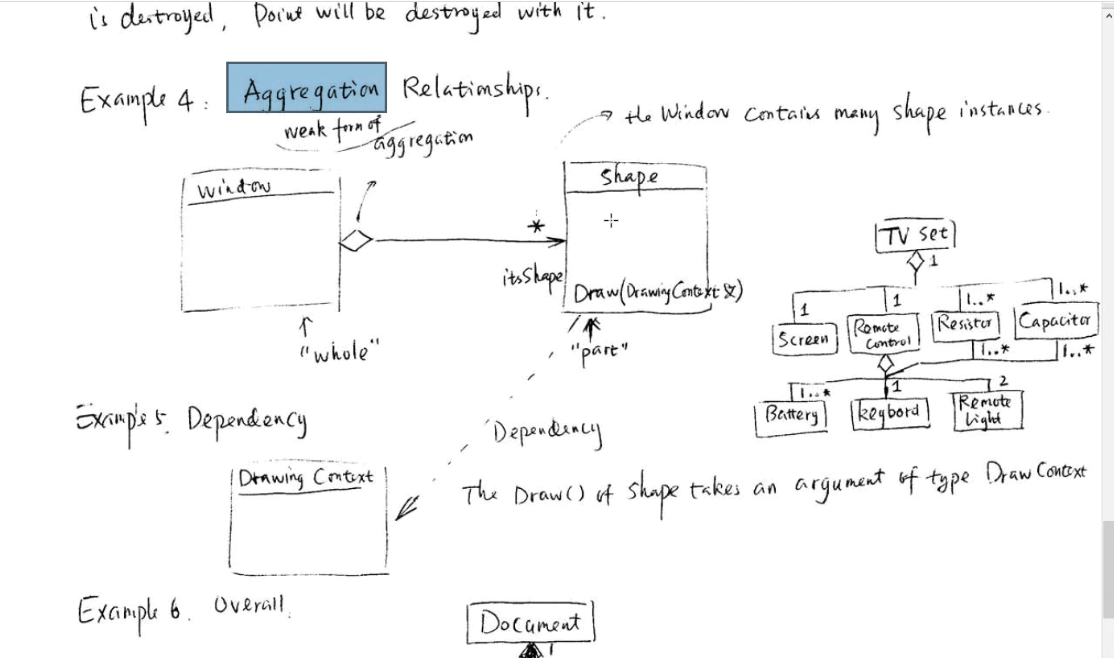 is destroyed, Point will be destroyed with it.
Example 4: Aggregation Relationships.
weak form of
aggregation
→ the Window contains many shape instances.
Window
Shape
*
itsShape
Draw(DrawingContext &)
"whole"
"part"
TV Set
1
1
1
1..*
1..*
Screen
Remote
Control
Resistor
Capacitor
1..*
1..*
1..*
1
2
Battery
keybord
Remote
Light
Example 5. Dependency
Dependency
Drawing Context
The Draw() of Shape takes an argument of type Draw Context
Example 6. Overall.
Document
1